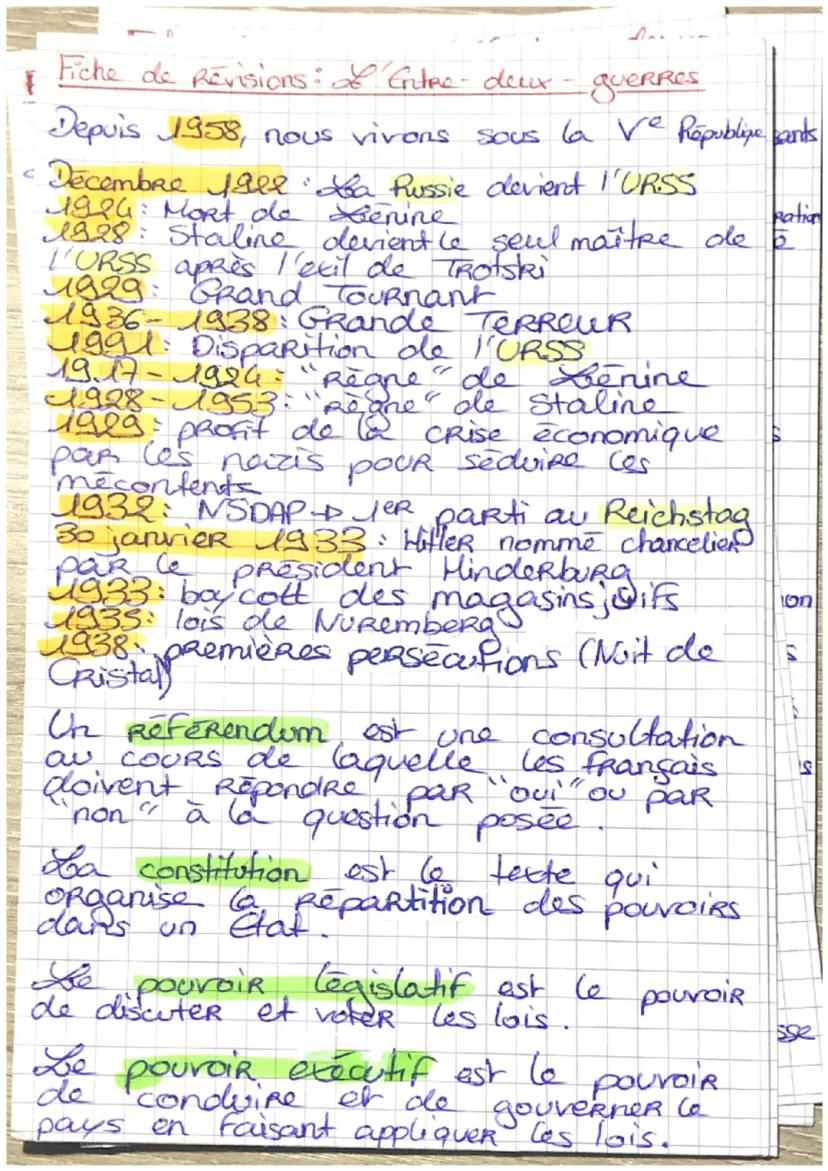 Fiche de Révisions: L'Entre-deux-guerres
Depuis 1958, nous vivons sous la Ve République
Décembre 1922: La Russie devient l'URSS
1924: Mort de Lénine
1928: Staline devient le seul maître de
l'URSS après l'exil de Trotski
1929: Grand Tournant
1936-1938: Grande Terreur
1991: Disparition de l'URSS
1917-1924: "règne" de Lénine
1928-1953: "règne" de Staline
1929: profit de la crise économique
par les nazis pour séduire les
mécontents
1932: NSDAP → 1er parti au Reichstag
30 janvier 1933: Hitler nommé chancelier
par le président Hinderburg
1933: boycott des magasins juifs
1935: lois de Nuremberg
1938: premières persécutions (Nuit de
Cristal)
Un référendum est une consultation
au cours de laquelle les français
doivent répondre par "oui" ou par
"non" à la question posée.
La constitution est le texte qui
organise la répartition des pouvoirs
dans un État.
Le pouvoir législatif est le pouvoir
de discuter et voter les lois.
Le pouvoir exécutif est le pouvoir
de conduire et de gouverner le
pays en faisant appliquer les lois.